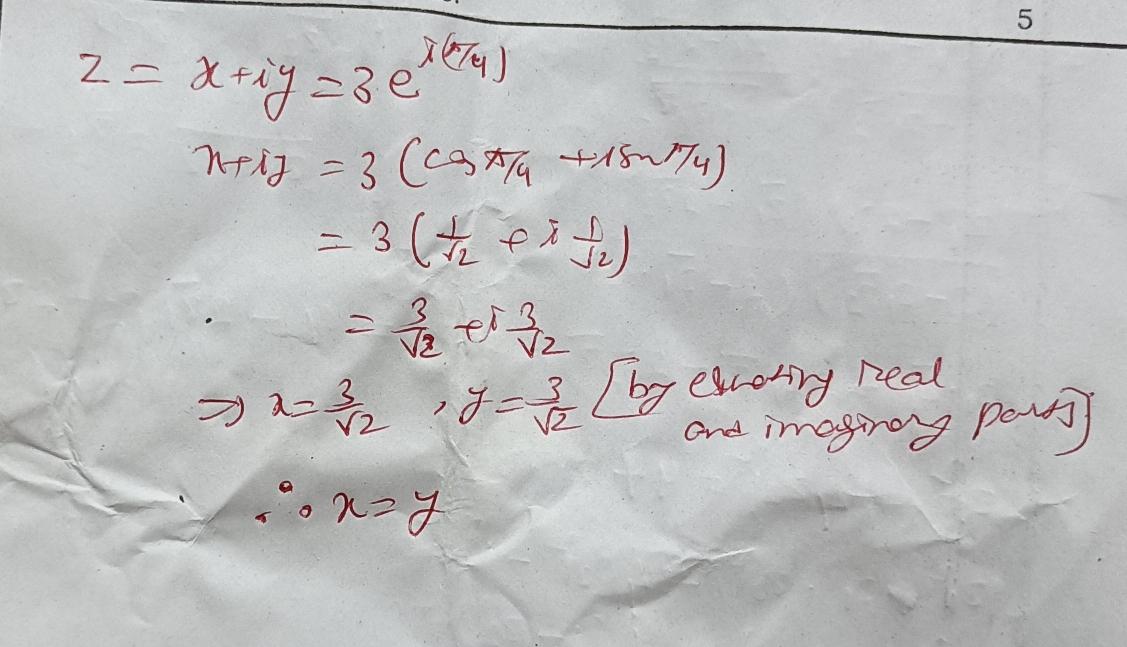 5
z = x+iy = 3e^i(π/4)
x+iy = 3 (cos π/4 + i sin π/4)
= 3 (1/√2 + i 1/√2)
= 3/√2 + i 3/√2
⇒ x = 3/√2 , y = 3/√2 [by equating real
and imaginary parts]
∴ x = y